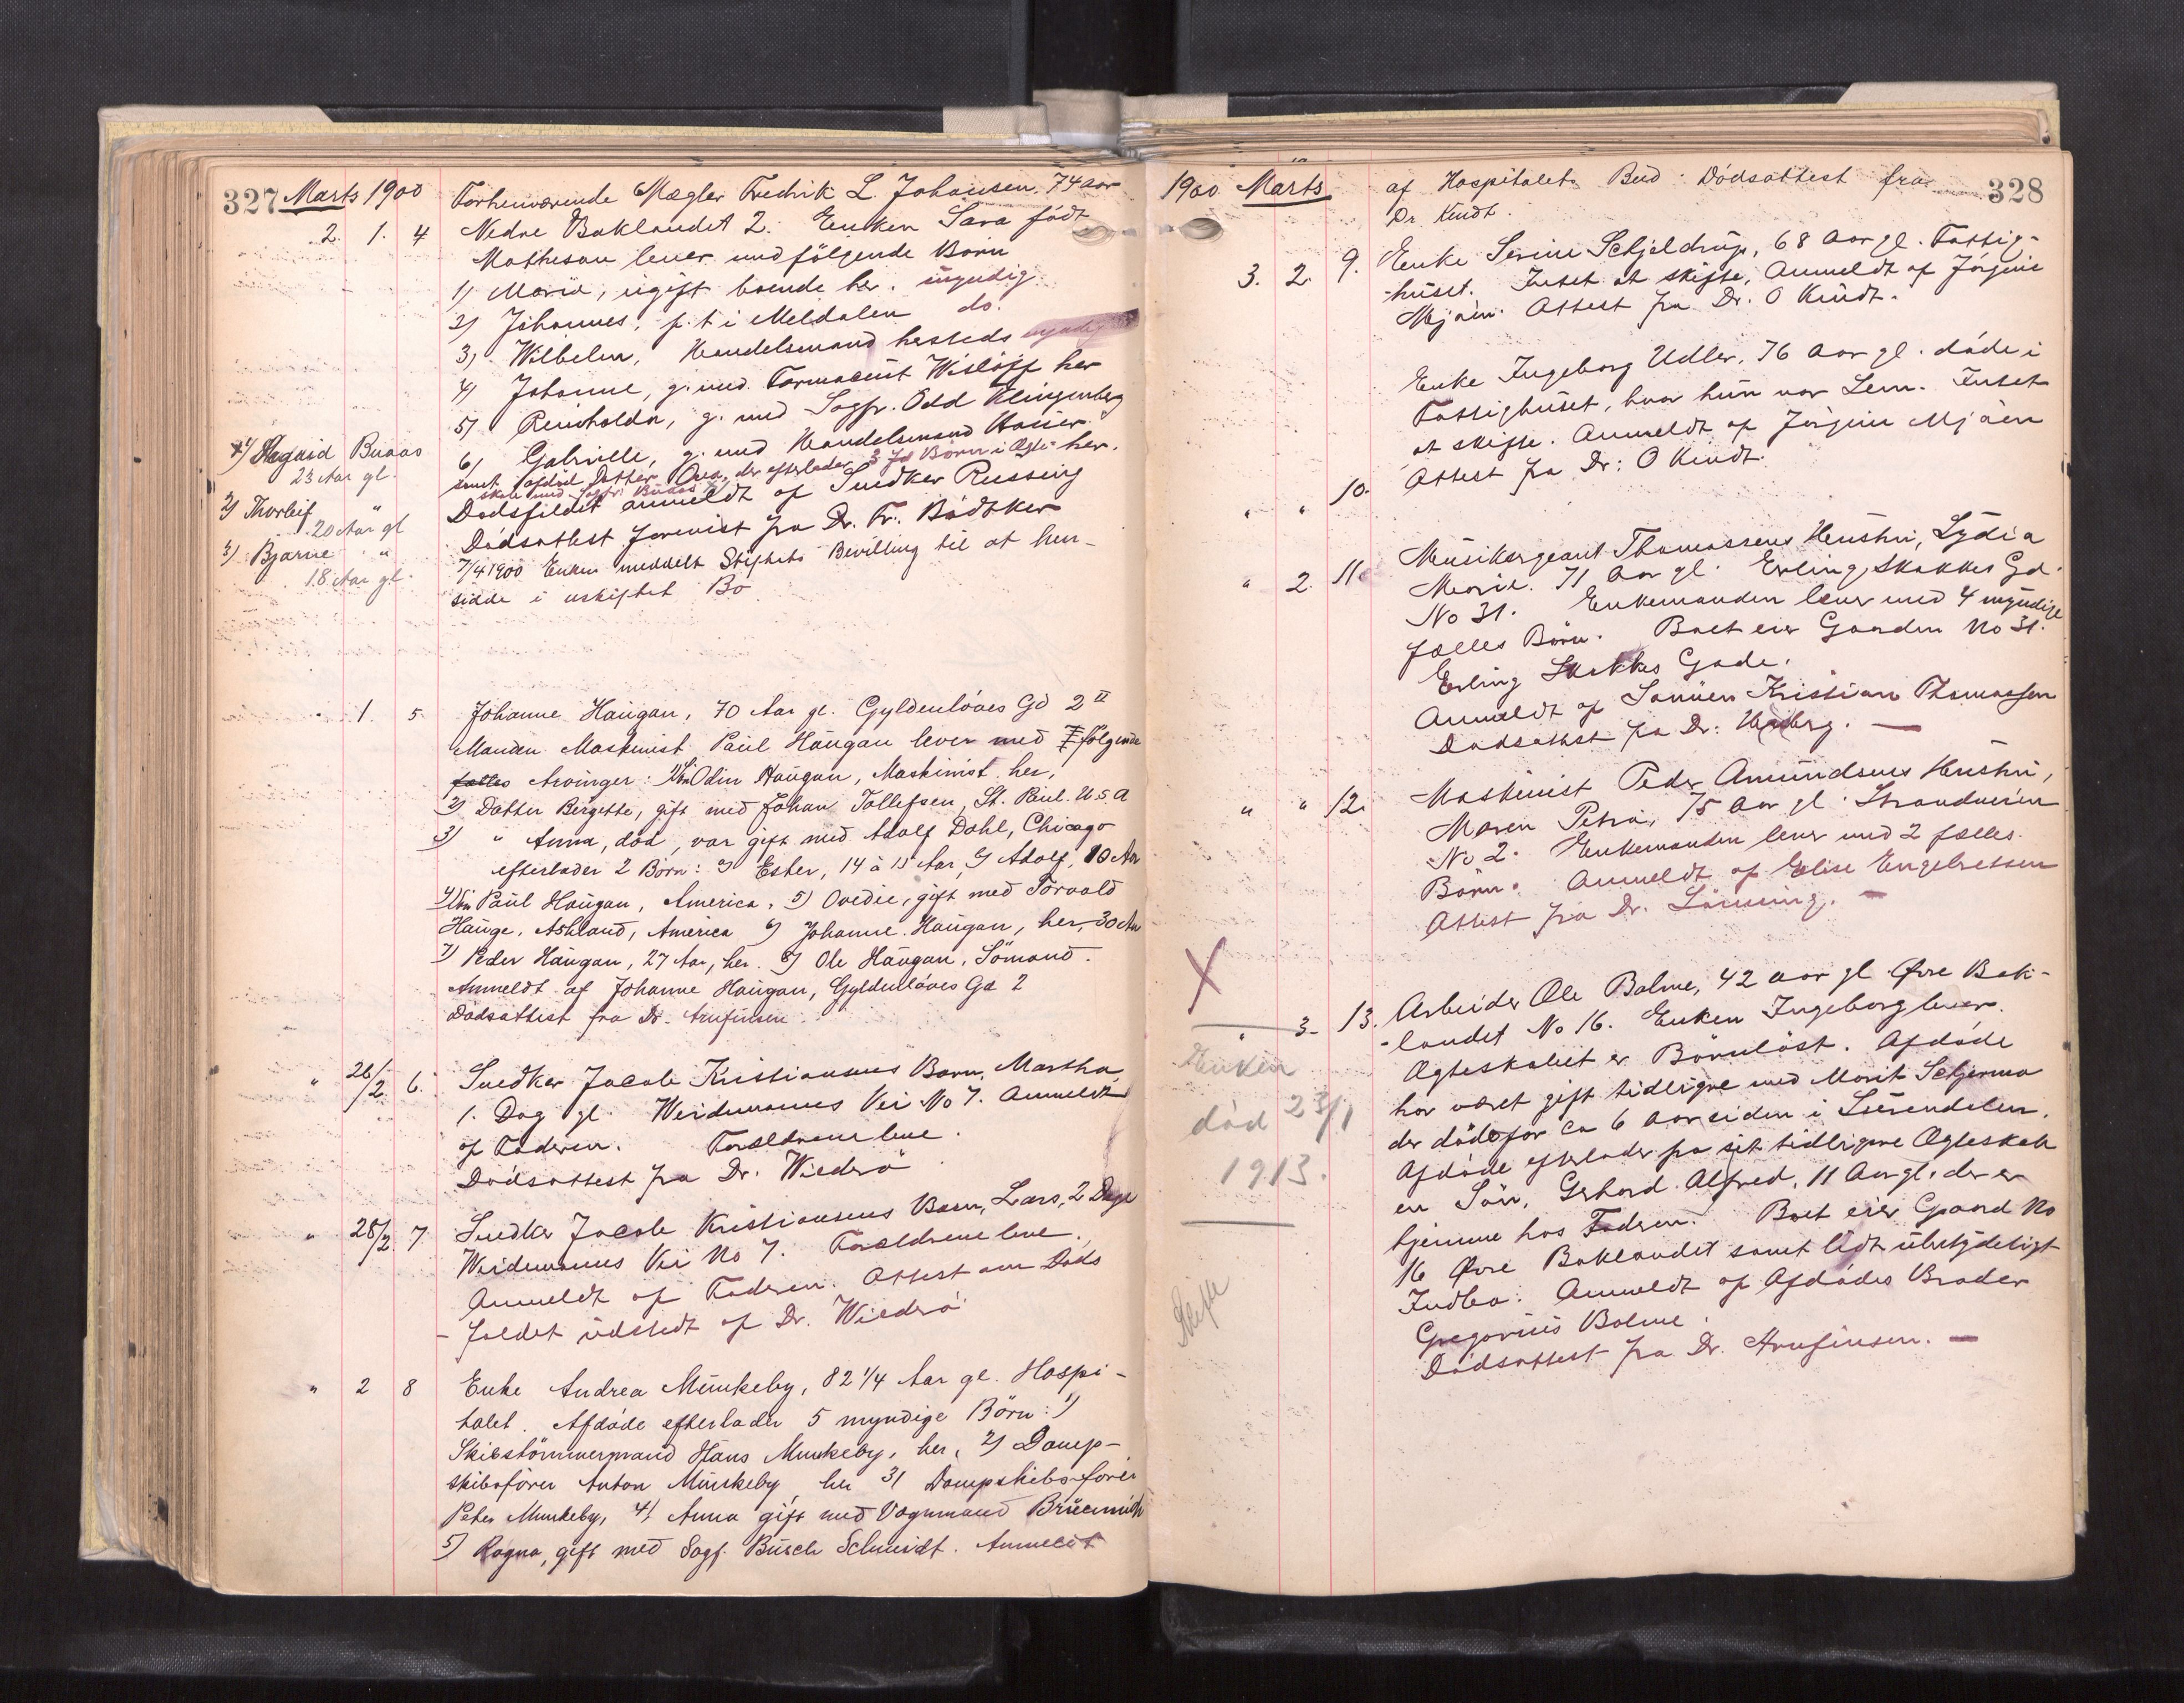 327 Marts 1900
Forhenværende Mægler Fredrik L. Johansen. 74 aar
2. 1. 4 Nedre Baklandet 2. Enken Sara født
Mathesen lever med følgende Børn
1) Maria, ugift boende her. myndig
2) Johannes, p. t i Meldalen do.
3) Wilhelm, Handelsmand hersteds myndig
4) Johanne, g. med Farmaceut Wisløff her
5) Reinholda, g. med Sogpr. Odd Klingenberg
6) Gabrielle, g. med Handelsmand
samt afdød Datter, der efterlader 3 Børn i Ægte- her.
skab med Buaas
1) Buaas
23 Aar gl.
2) Thorleif "
20 Aar gl
3) Bjarne "
18 Aar gl.
Dødsfaldet anmeldt af Snedker Russing
Dødsattest forevist fra Dr. Fr. Bødtker
7/4 1900 Enken meddelt Stiftets Bevilling til at hen-
sidde i uskiftet Bo
1. 5. Johanne Haugan, 70 Aar gl. Gyldenløves Gd 2 II
Manden Maskinist Paul Haugan lever med følgende
fælles Arvinger: 1) Søn Odin Haugan, Maskinist her,
2) Datter Bergette, gift med Johan Tollefsen, St. Paul. U.S.A
3) " Anna, død, var gift med Adolf Dahl, Chicago
efterlader 2 Børn: Ester, 14 à 15 Aar, Adolf, 10 Aar
4) Søn Paul Haugan, America, 5) Ovedie, gift med Torvald
Hauge, Ashland, America 6) Johanne Haugan, her, 30 Aar
7) Peder Haugan, 27 Aar, her. 8) Ole Haugan, Sömand.
Anmeldt af Johanne Haugan, Gyldenløves Gd 2
Dødsattest fra Dr. Arnfinsen.
" 26/2. 6. Snedker Jacob Kristiansens Barn, Martha
1. Dag gl. Weidemanns Vei No 7. Anmeldt
af Faderen. Forældrene leve.
Dødsattest fra Dr. Widerø
" 28/2. 7 Snedker Jacob Kristiansens Barn, Lars, 2 Dage
Weidemanns Vei No 7. Forældrene leve.
Anmeldt af Faderen. Attest om Døds
- faldet udstedt af Dr. Widerø
" 2 8 Enke Andrea Munkeby, 82 1/4 Aar gl. Hospi-
talet. Afdøde efterlader 5 myndige Børn: 1)
Skibstømmermand Hans Munkeby, her, 2) Damp-
skibsfører Anton Munkeby, her 3) Dampskibsfører
Peter Munkeby, 4) Anna gift med Vognmand
5) Ragna, gift med Sagf. Busch Schmidt. Anmeldt
1900 Marts 328
af Hospitalets Bud. Dødsattest fra
Dr. Kindt.
3. 2. 9. Enke Serine Schjeldrup, 68 Aar gl. Fattig-
-huset. Intet at skifte, Anmeldt af Jørgine
Mjøen. Attest fra Dr. O Kindt.
Enke Ingeborg Udler, 76 Aar gl. døde i
Fattighuset, hvor hun var Lem. Intet
at skifte. Anmeldt af Jørgine Mjøen
" " 10. Attest fra Dr: O Kindt.
" 2. 11. Musikersergeant Thomassens Hustru, Lydia
Marie. 71 Aar gl. Erling Skakkes Gd.
No 31. Enkemanden lever med 4 myndige
fælles Børn. Boet eier Gaarden No 31.
Erling Skakkes Gade.
Anmeldt af Sønnen Kristian Thomassen
Dødsattest fra Dr:
" " 12. Maskinist Peder Amundsens Hustru,
Maren Petra, 75 Aar gl. Strandveien
No 2. Enkemanden lever med 2 fælles
Børn. Anmeldt af Elise Engebretsen
Attest fra Dr. Lønning. —
X
" 3. 13. Arbeider Ole Bolme, 42 aar gl. Øvre Bak-
-landet No 16. Enken Ingeborg lever.
Ægteskabet er Børnløst. Afdøde
har været gift tidligere med Marit
der døde for ca 6 Aar siden i Surendalen.
Afdøde efterlader fra sit tidligere Ægteskab
en Søn, Gerhard Alfred, 11 Aar gl. der er
hjemme hos Fadren. Boet eier Gaard No
16 Øvre Baklandet samt lidt ubetydeligt
Indbo. Anmeldt af Afdødes Broder
Gregorius Bolme.
Dødsattest fra Dr. Arnfinsen. —
Enken
død 23/1
1913.